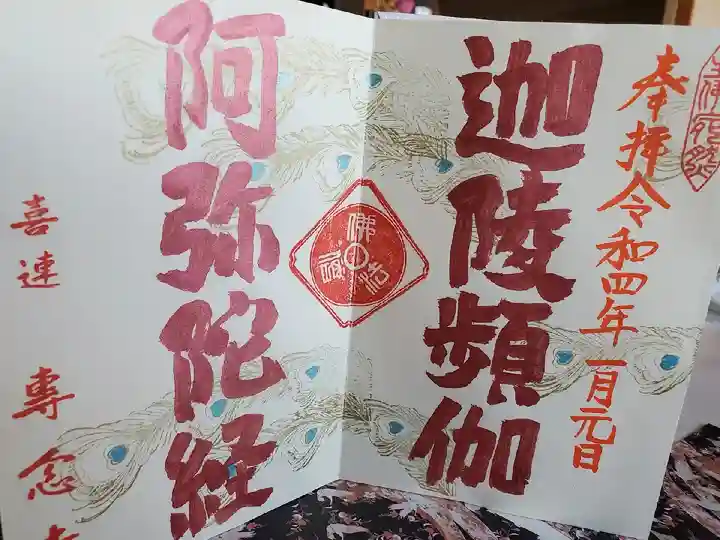 奉拝令和四年一月元日
迦陵頻伽
佛法僧
阿弥陀経
喜連 專念寺